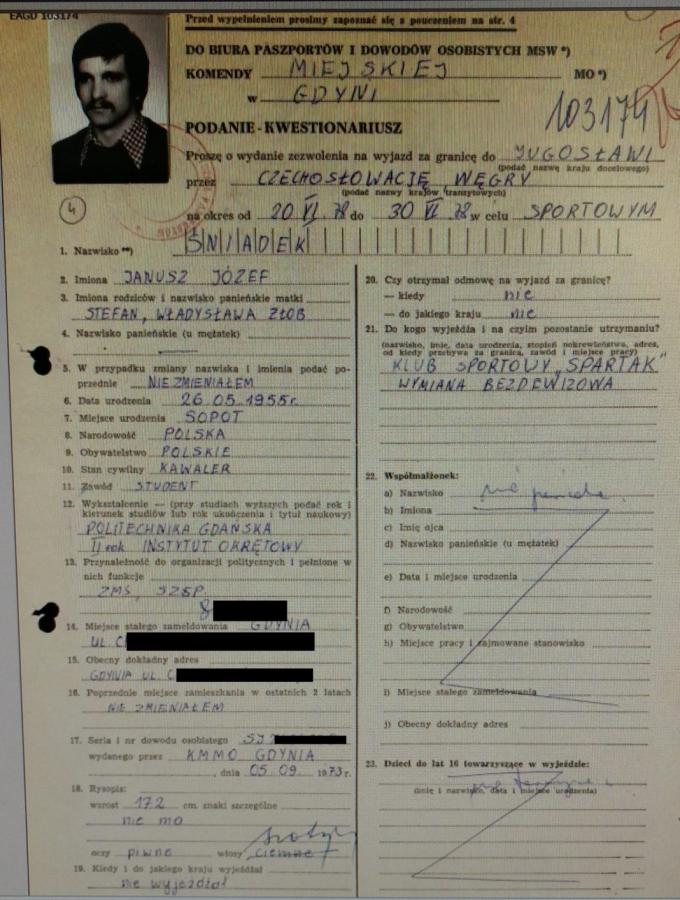 EAGD 103174
Przed wypełnieniem prosimy zapoznać się z pouczeniem na str. 4
DO BIURA PASZPORTÓW I DOWODÓW OSOBISTYCH MSW *)
KOMENDY MIEJSKIEJ MO *)
w GDYNI
103174
PODANIE-KWESTIONARIUSZ
Proszę o wydanie zezwolenia na wyjazd za granicę do JUGOSŁAWI
(podać nazwę kraju docelowego)
przez CZECHOSŁOWACJĘ WĘGRY
(podać nazwy krajów tranzytowych)
4
na okres od 20 VI 78 do 30 VI 78 w celu SPORTOWYM
1. Nazwisko **) ŚNIADEK
2. Imiona JANUSZ JÓZEF
3. Imiona rodziców i nazwisko panieńskie matki
STEFAN, WŁADYSŁAWA ZŁOB
4. Nazwisko panieńskie (u mężatek)
5. W przypadku zmiany nazwiska i imienia podać poprzednie NIE ZMIENIAŁEM
6. Data urodzenia 26.05.1955r.
7. Miejsce urodzenia SOPOT
8. Narodowość POLSKA
9. Obywatelstwo POLSKIE
10. Stan cywilny KAWALER
11. Zawód STUDENT
12. Wykształcenie — (przy studiach wyższych podać rok i
kierunek studiów lub rok ukończenia i tytuł naukowy)
POLITECHNIKA GDAŃSKA
II rok INSTYTUT OKRĘTOWY
13. Przynależność do organizacji politycznych i pełnione w
nich funkcje
ZMS, SZSP
14. Miejsce stałego zameldowania GDYNIA
UL. C
15. Obecny dokładny adres
GDYNIA UL. C
16. Poprzednie miejsce zamieszkania w ostatnich 2 latach
NIE ZMIENIAŁEM
17. Seria i nr dowodu osobistego
wydanego przez KMMO GDYNIA
, dnia 05.09. 1973 r.
18. Rysopis:
wzrost 172 cm. znaki szczególne
nie ma
oczy piwne włosy ciemne
19. Kiedy i do jakiego kraju wyjeżdżał
nie wyjeżdżał
20. Czy otrzymał odmowę na wyjazd za granicę?
— kiedy nie
— do jakiego kraju nie
21. Do kogo wyjeżdża i na czyim pozostanie utrzymaniu?
(nazwisko, imię, data urodzenia, stopień pokrewieństwa, adres,
od kiedy przebywa za granicą, zawód i miejsce pracy)
KLUB SPORTOWY "SPARTAK"
WYMIANA BEZDEWIZOWA
22. Współmałżonek:
a) Nazwisko nie
b) Imiona
c) Imię ojca
d) Nazwisko panieńskie (u mężatek)
e) Data i miejsce urodzenia
f) Narodowość
g) Obywatelstwo
h) Miejsce pracy i zajmowane stanowisko
i) Miejsce stałego zameldowania
j) Obecny dokładny adres
23. Dzieci do lat 16 towarzyszące w wyjeździe:
(imię i nazwisko, data i miejsce urodzenia)